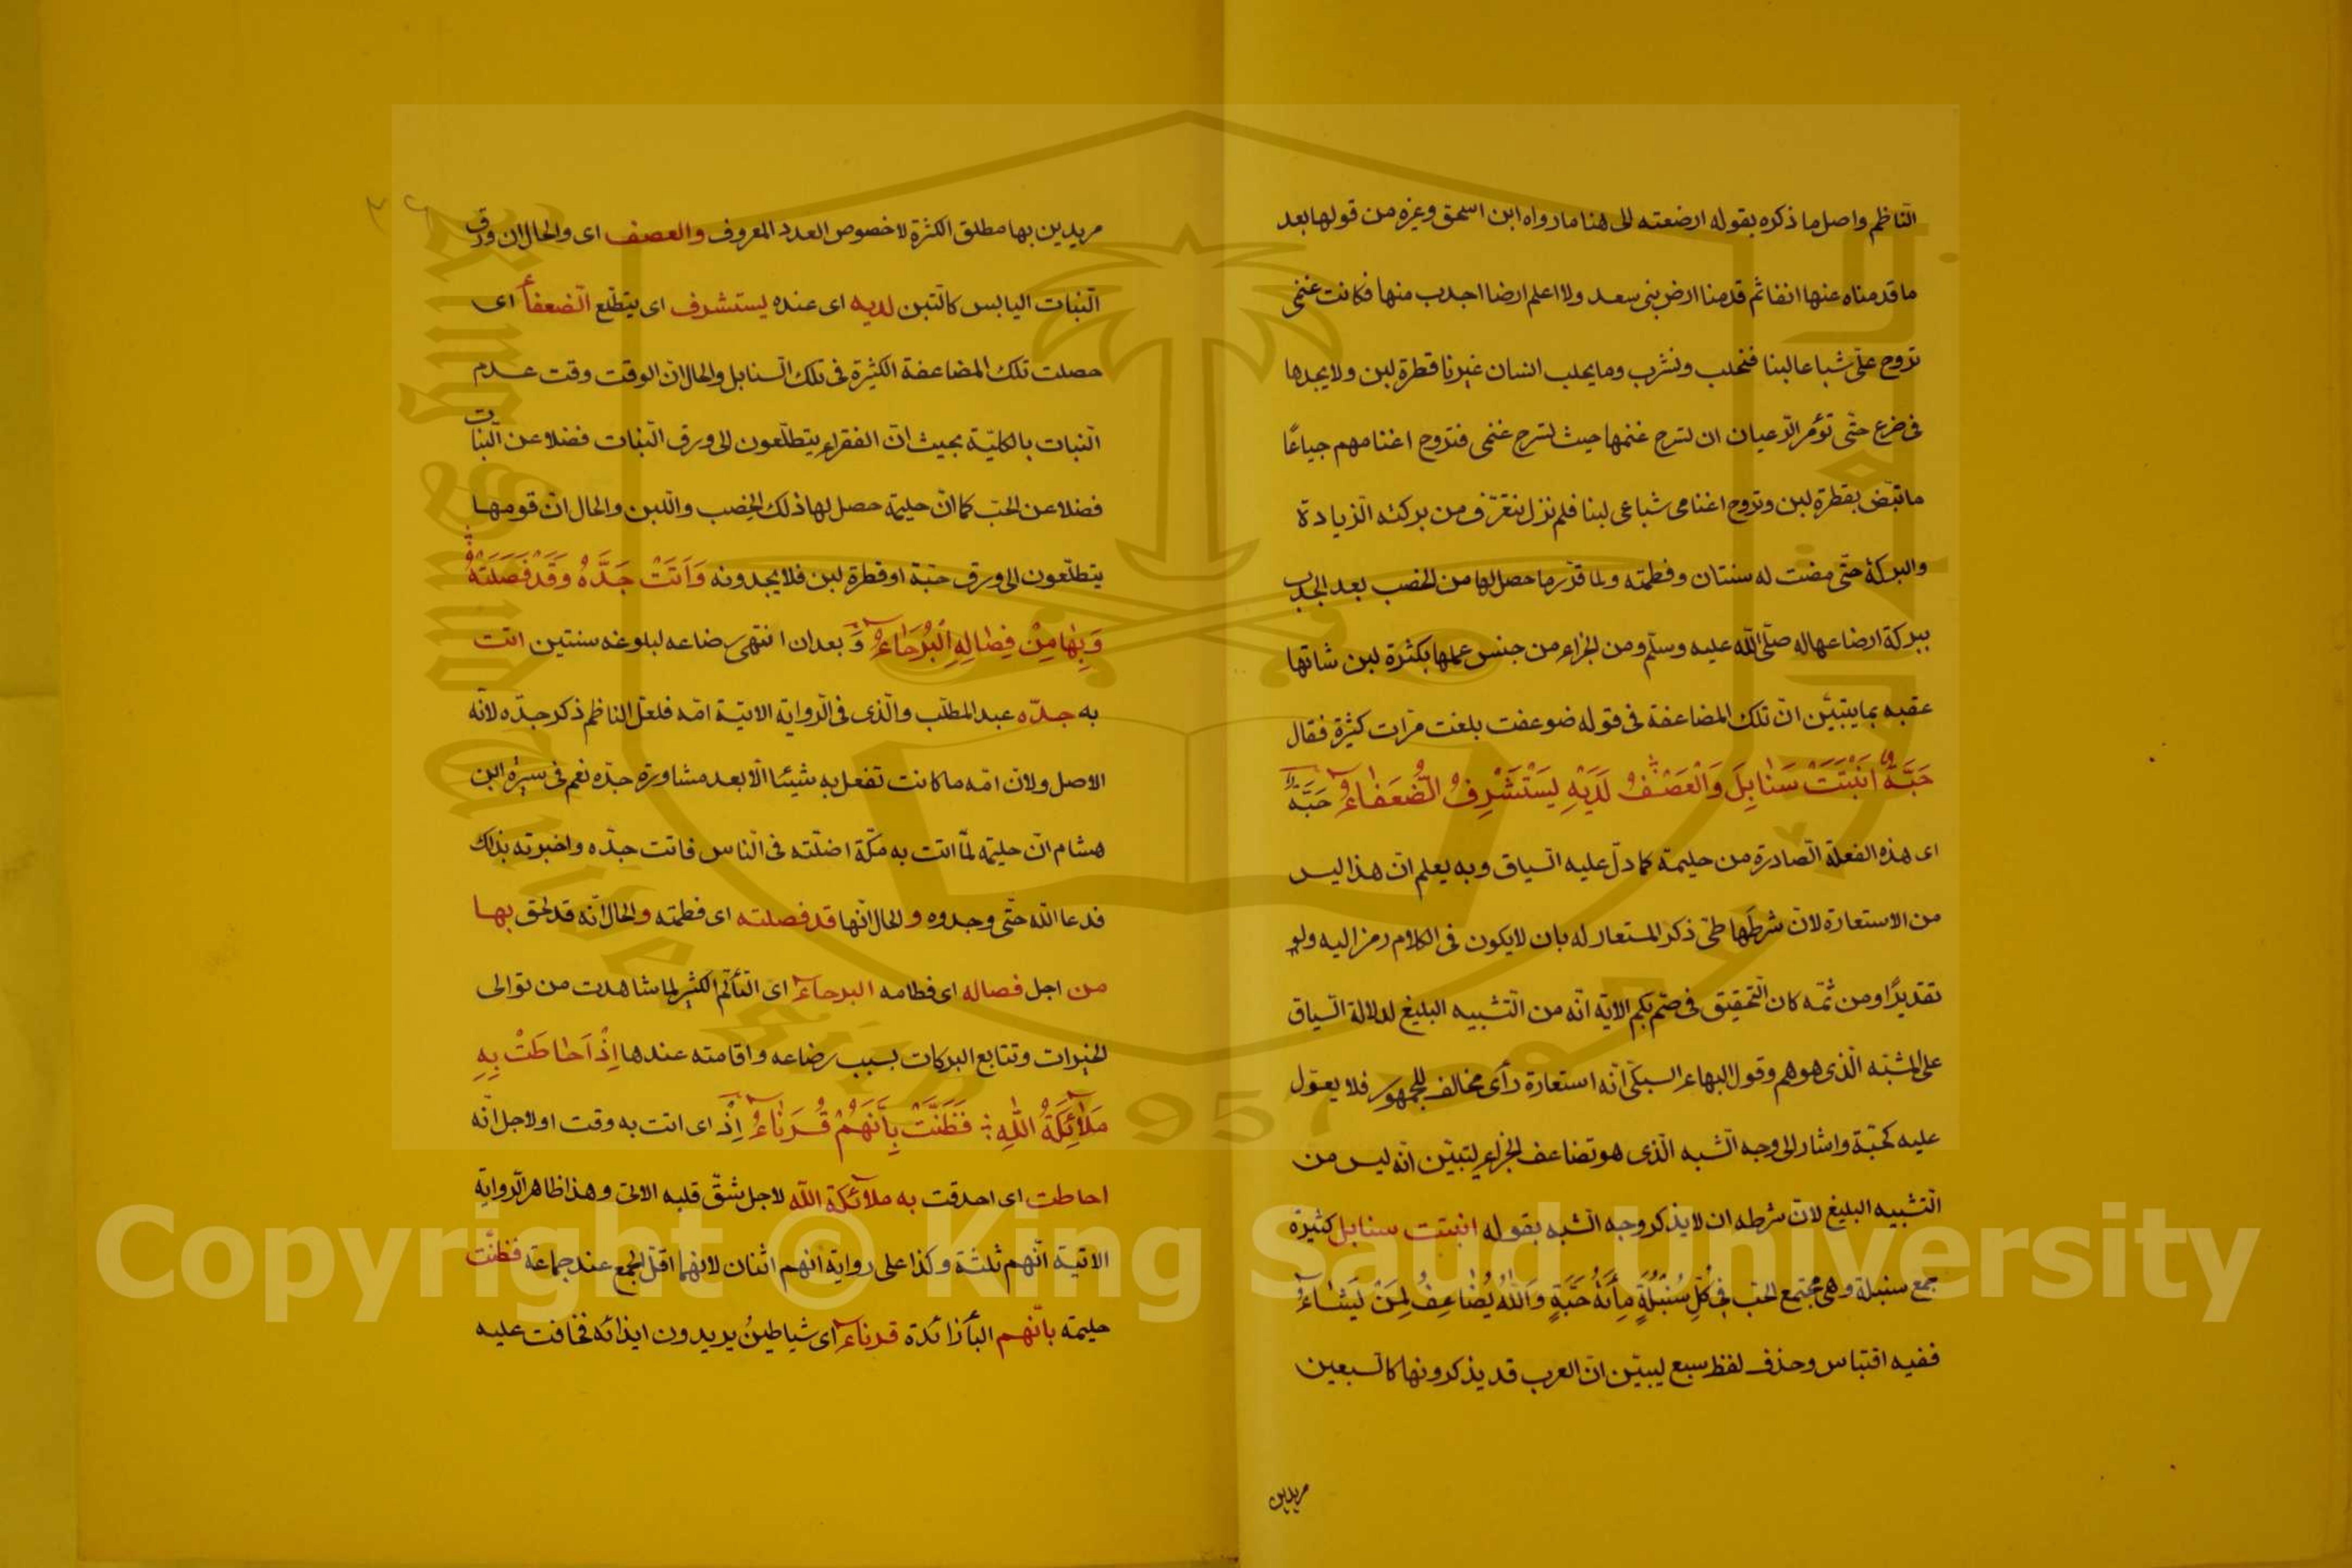 الناظم واصل ما ذكره بقوله ارضعته الى هنا ما رواه ابن اسحق وغيره من قولها بعد
ما قدمناه عنها انفا ثم قدمنا ارض بنى سعد ولا اعلم ارضا اجدب منها فكانت غنمى
تروح علىّ شباعا لبنا فنحلب ونشرب وما يحلب انسان غيرنا قطرة لبن ولا يجدها
فى ضرع حتّى تؤمر الرعيان ان تسرح غنمها حيث تسرح غنمى فتروح اغنامهم جياعًا
ما تبض بقطرة لبن وتروح اغنامى شباعى لبنا فلم نزل نتعرّف من بركته الزيادة
والبركة حتّى مضت له سنتان وفطمته ولما قرّر ما حصل لها من الخصب بعد الجدب
ببركة ارضاعها له صلّى الله عليه وسلّم ومن الجزاء من جنس عملها بكثرة لبن شاتها
عقبه بما يتبيّن انّ تلك المضاعفة فى قوله ضوعفت بلغت مرّات كثيرة فقال
حَبَّةٌ اَنْبَتَتْ سَنٰابِلَ وَالْعَصْفُ لَدَيْهِ يَسْتَشْرِفُ الضُّعَفٰاءُ حَبَّةٌ
اى هذه الفعلة الصادرة من حليمة كما دلّ عليه السياق وبه يعلم انّ هذا ليس
من الاستعارة لانّ شرطها طىّ ذكر المستعار له بان لا يكون فى الكلام رمز اليه ولو
تقديرًا ومن ثمّه كان التحقيق فى صمّ بكم الاية انّه من التشبيه البليغ لدلالة السياق
على المشبّه الّذى هو هم وقول البهاء السبكى انّه استعارة رأى مخالف للجمهور فلا يعوّل
عليه كحبّة واشار الى وجه الشبه الّذى هو تضاعف الجزاء ليتبيّن انّه ليس من
التشبيه البليغ لانّ شرطه ان لا يذكر وجه الشبه بقوله انبتت سنابل كثيرة
جمع سنبلة وهى مجتمع الحب فِى كُلِّ سُنْبُلَةٍ مِأَئَةُ حَبَّةٍ وَاللهُ يُضٰاعِفُ لِمَنْ يَشٰاءُ
ففيه اقتباس وحذف لفظ سبع ليبيّن انّ العرب قد يذكرونها كالسبعين
مريدين
مريدين بها مطلق الكثرة لا خصوص العدد المعروف والعصف اى والحال ان ورق
النبات اليابس كالتبن لديه اى عنده يستشرف اى يتطلّع الضعفاء اى
حصلت تلك المضاعفة الكثيرة فى تلك السنابل والحال انّ الوقت وقت عدم
النبات بالكليّة بحيث انّ الفقراء يتطلّعون الى ورق النبات فضلا عن النبات
فضلا عن الحبّ كما انّ حليمة حصل لها ذلك الخصب واللبن والحال انّ قومها
يتطلّعون الى ورق حبّة او قطرة لبن فلا يجدونه وَاَتَتْ جَدَّهُ وَقَدْ فَصَلَتْهُ
وَبِهٰا مِنْ فِصٰالِهِ الْبُرَحٰاءُ وَ بعد ان انتهى رضاعه لبلوغه سنتين اتت
به جدّه عبد المطلّب والّذى فى الرواية الاتيّة امّه فلعلّ الناظم ذكر جدّه لانّه
الاصل ولانّ امّه ما كانت تفعل به شيئا الّا بعد مشاورة جدّه نعم فى سيرة ابن
هشام انّ حليمة لمّا اتت به مكّة اضلّته فى النّاس فاتت جدّه واخبرته بذلك
فدعا الله حتّى وجدوه و الحال انّها قد فصلته اى فطمته والحال انّه قد لحق بها
من اجل فصاله اى فطامه البرحاء اى التألّم الكثير لما شاهدت من توالى
الخيرات وتتابع البركات بسبب رضاعه واقامته عندها اِذْ اَحٰاطَتْ بِهِ
مَلٰٓئِكَةُ اللهِ فَظَنَّتْ بِاَنَّهُمْ قُرَنٰاءُ اِذْ اى اتت به وقت او لاجل انّه
احاطت اى احدقت به ملائكة الله لاجل شقّ قلبه الاتى وهذا ظاهر الرواية
الاتية انّهم ثلثة وكذا على رواية انهم اثنان لانهما اقلّ الجمع عند جماعة فظنّت
حليمة بانّهم البأ زائدة قرناء اى شياطينُ يريدون ايذائه فخافت عليه
Copyright © King Saud University
King Saud University
1957